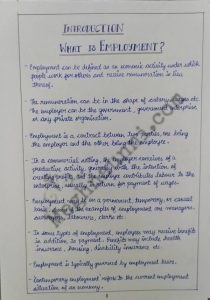 INTRODUCTION
WHAT IS EMPLOYMENT?
- Employment can be defined as an economic activity under which
people work for others and receive remuneration in lieu
thereof.
- The remuneration can be in the shape of salary, wages etc.
The employer can be the government, government enterprise or
any private organisation.
- Employment is a contract between two parties, one being
the employer and the other being the employee.
- In a commercial setting, the employer conceives of a
productive activity, generally with the intention of
creating profits, and the employee contributes labour to the
enterprise, usually in return for payment of wages.
- Employment may be on a permanent, temporary, or casual
basis. Some of the examples of employment are managers,
labourers, clerks etc.
- In some types of employment, employees may receive benefits
in addition to payment. Benefits may include health
insurance, housing, disability insurance etc.
- Employment is typically governed by employment laws.
- Contemporary employment refers to the current employment
situation of an economy.